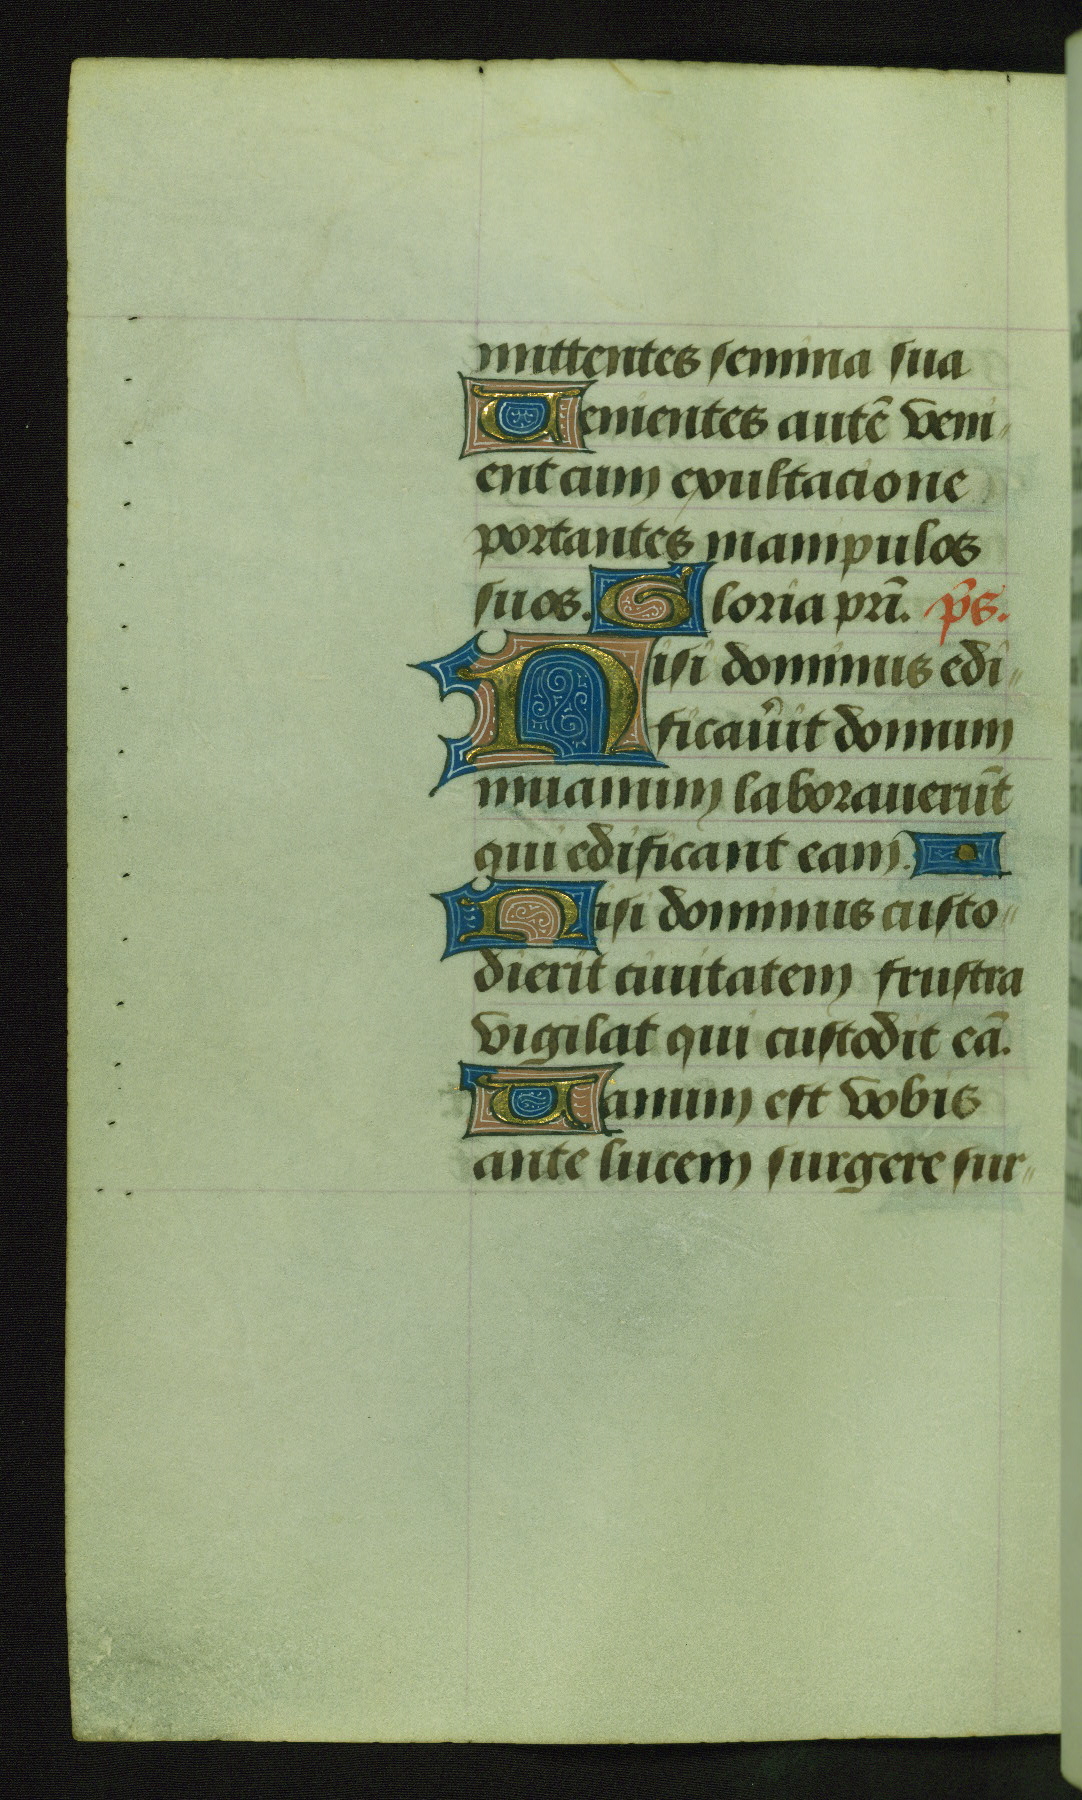 mittentes semina sua
Uenientes autē veni„
ent cum exultacione
portantes manipulos
suos. Gloria pr̄i. p̄s.
Nisi dominus edi„
ficauit domum
inuanum laborauerūt
qui edificant eam.
Nisi dominus custo„
dierit ciuitatem frustra
vigilat qui custodit eā.
Uanum est vobis
ante lucem surgere sur„